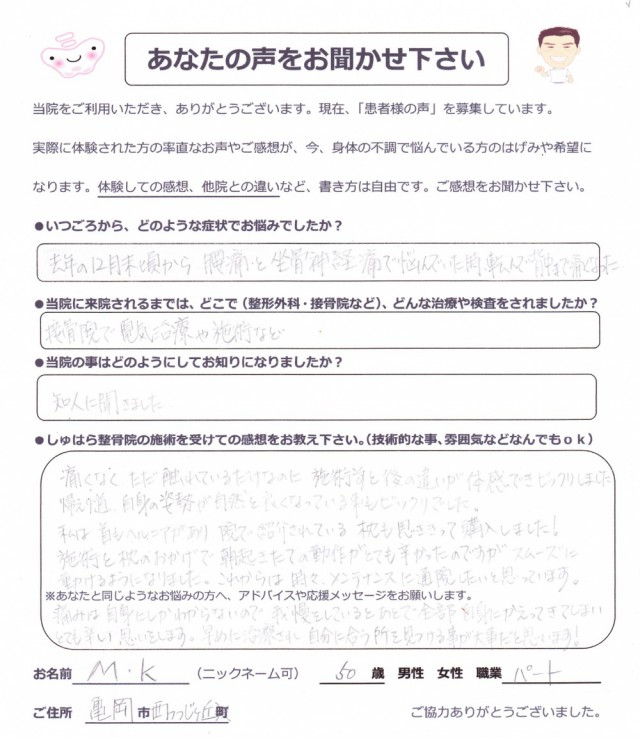 あなたの声をお聞かせ下さい
当院をご利用いただき、ありがとうございます。現在、「患者様の声」を募集しています。
実際に体験された方の率直なお声やご感想が、今、身体の不調で悩んでいる方のはげみや希望に
なります。体験しての感想、他院との違いなど、書き方は自由です。ご感想をお聞かせ下さい。
●いつごろから、どのような症状でお悩みでしたか？
去年の12月末頃から 腰痛と坐骨神経痛で悩んでいた時、転んで背中まで痛くなった
●当院に来院されるまでは、どこで（整形外科・接骨院など）、どんな治療や検査をされましたか？
接骨院で電気治療や施術など
●当院の事はどのようにしてお知りになりましたか？
知人に聞きました
●しゅはら整骨院の施術を受けての感想をお教え下さい。（技術的な事、雰囲気などなんでもｏｋ）
痛くなく ただ触れているだけなのに 施術前と後の違いが体感できビックリしました
帰り道、自身の姿勢が自然と良くなっている事もビックリでした。
私は首もヘルニアがあり 院で紹介されている枕も思いきって購入しました！
施術と枕のおかげで朝起きたての動作がとても辛かったのですが スムーズに
動けるようになりました。これからは 時々、メンテナンスに通院したいと思っています。
※あなたと同じようなお悩みの方へ、アドバイスや応援メッセージをお願いします。
痛みは自身にしかわからないので 我慢をしているとあとで全部自身にかえってきてしまい
とても辛い思いをします。早めに治療され 自分に合う所を見つける事が大事だと思います！
お名前 M・K （ニックネーム可） 50 歳 男性 女性 職業 パート
ご住所 亀岡市西つつじヶ丘町 ご協力ありがとうございました。